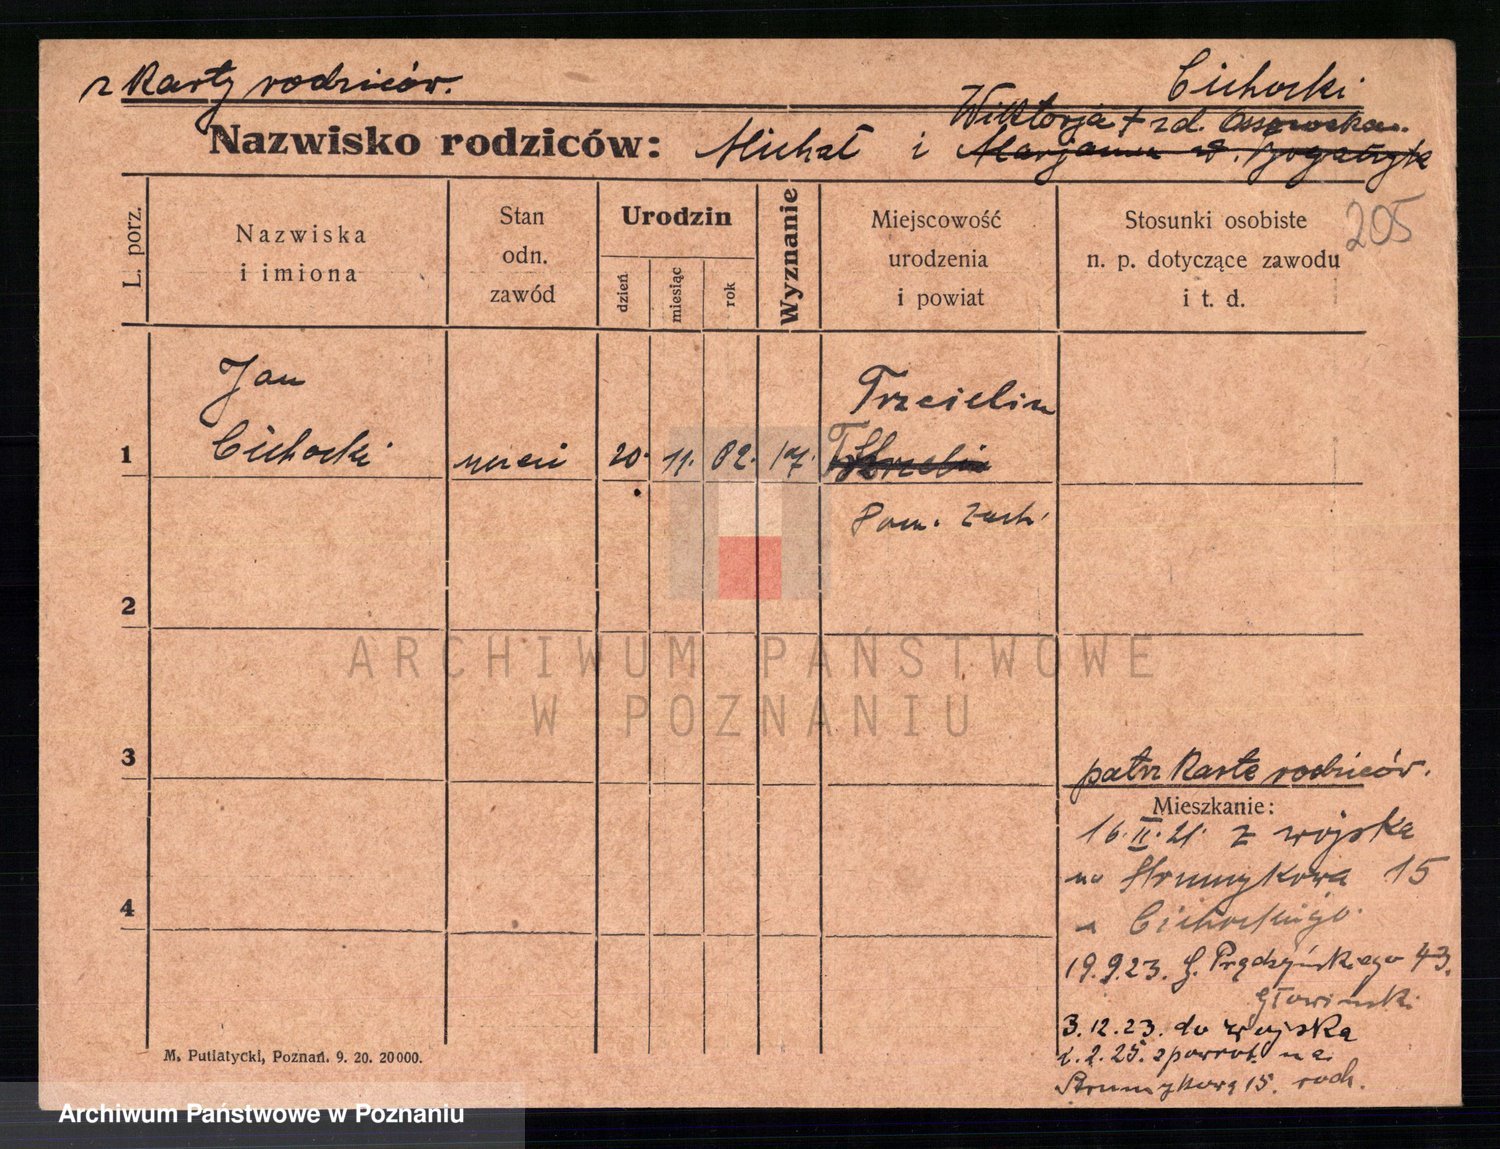 z Karty rodziców.
Cichocki
Wiktorja + zd.
Nazwisko rodziców: Michał i Marjanna
205
L. porz.
Nazwiska i imiona
Stan odn. zawód
Urodzin
dzień
miesiąc
rok
Wyznanie
Miejscowość urodzenia i powiat
Stosunki osobiste n. p. dotyczące zawodu i t. d.
Jan
Trzcielin
1 Cichocki uczeń 20. 11. 02.
Pozn. Zach.
2
3
4
patrz Kartę rodziców.
Mieszkanie:
16.II.21. z wojska
na Strumykową 15
u Cichockiego.
19.9.23. G. Prądzyńskiego 43.
Głowinski
3.12.23. do wojska
2.25. zpowrot. na
Strumykową 15. rodz.
M. Putiatycki, Poznań. 9. 20. 20000.
ARCHIWUM PAŃSTWOWE
W POZNANIU
Archiwum Państwowe w Poznaniu